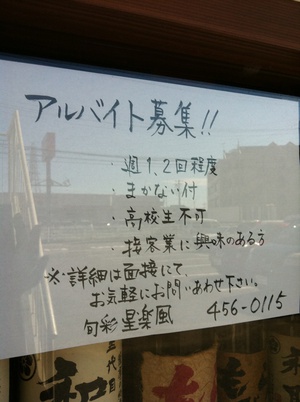 アルバイト募集!!
・週1,2回程度
・まかない付
・高校生不可
・接客業に興味のある方
※詳細は面接にて、
お気軽にお問いあわせ下さい。
旬彩 星楽風 456-0115
五代目